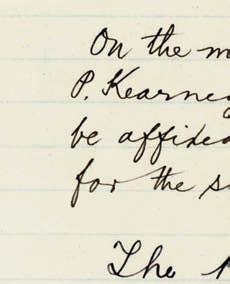 On the m
P. Kearney
be affixed
for the s
The